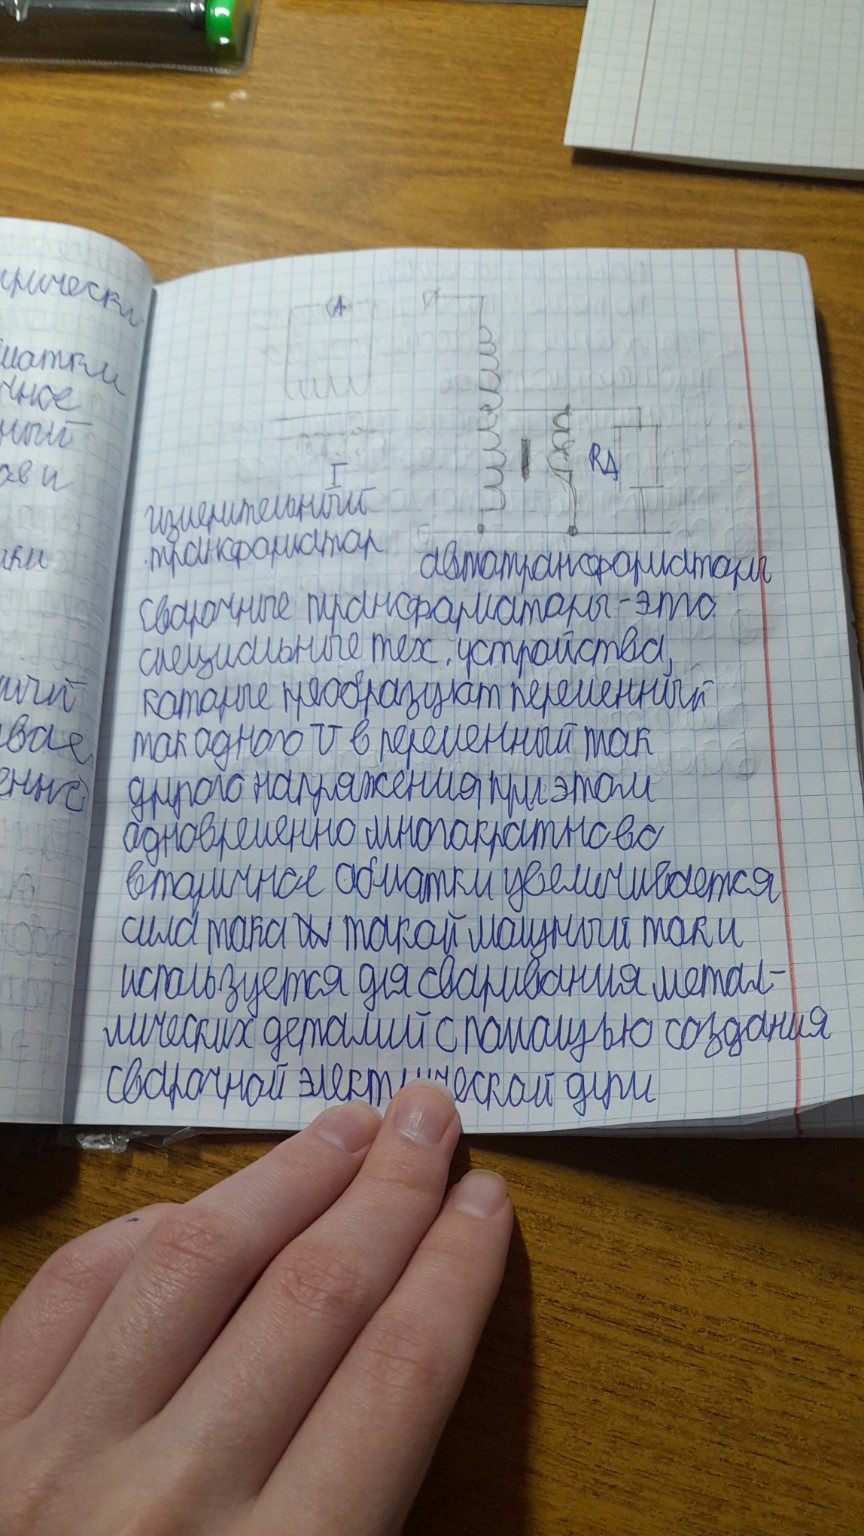 ический
матки
чное
ный
ки
А
I
RД
измерительный
трансформатор
автотрансформаторы
сварочные трансформаторы - это
специальные тех. устройства,
которые преобразуют переменный
ток одного U в переменный ток
другого напряжения при этом
одновременно многократно во
вторичное обмотки увеличивается
сила тока такой мощный ток и
используется для сваривания метал-
лических деталий с помощью создания
сварочной электрической дуги